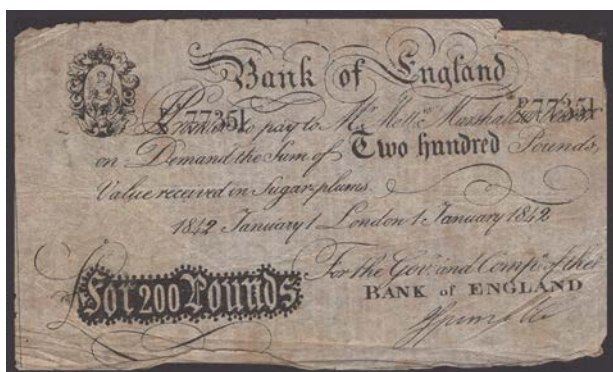 Bank of England
I Promise to pay to Mr. Marshall
77351 77351
on Demand the Sum of Two Hundred Pounds,
Value received in Sugar-plums.
1842 January 1 London 1 January 1842
For the Govr. and Compa. of the
BANK of ENGLAND
For 200 Pounds